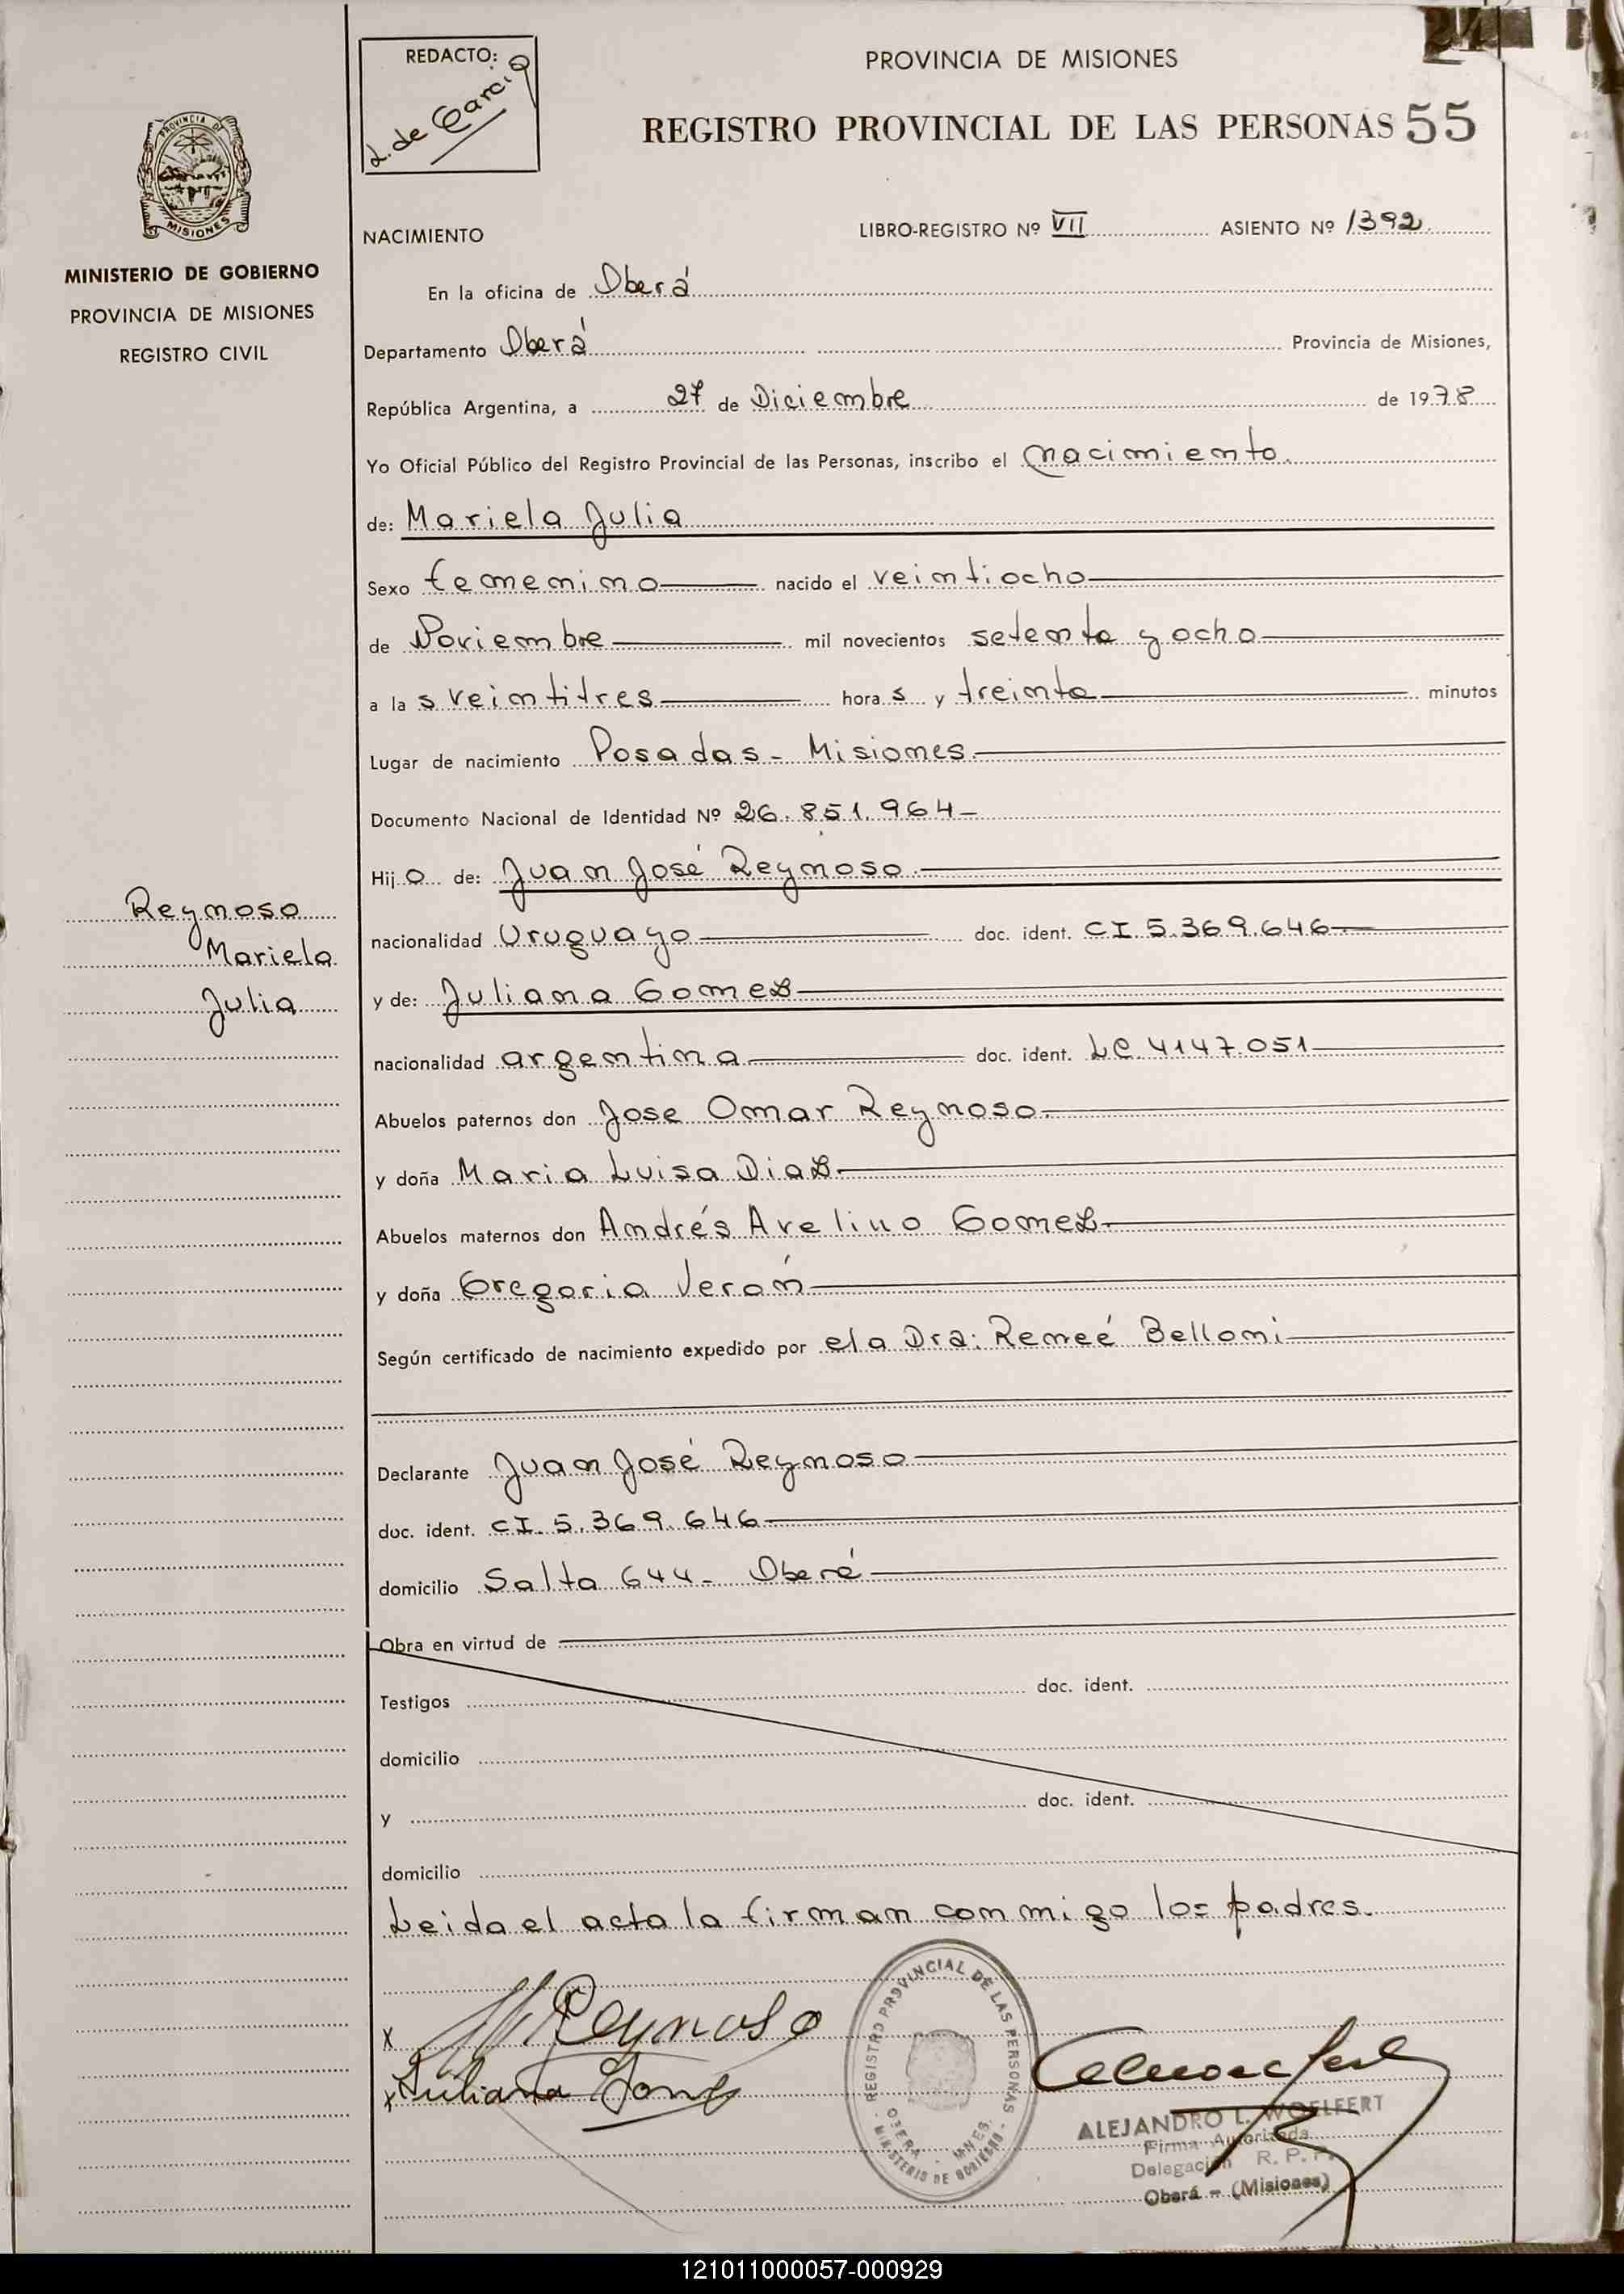 REDACTO:
L. de Garcia
PROVINCIA DE MISIONES
REGISTRO PROVINCIAL DE LAS PERSONAS 55
PROVINCIA DE
MISIONES
MINISTERIO DE GOBIERNO
PROVINCIA DE MISIONES
REGISTRO CIVIL
NACIMIENTO
LIBRO-REGISTRO Nº VII ASIENTO Nº 1392
En la oficina de Oberá
Departamento Oberá Provincia de Misiones,
República Argentina, a 27 de Diciembre de 1978
Yo Oficial Público del Registro Provincial de las Personas, inscribo el nacimiento
de: Mariela Julia
Sexo femenino nacido el veintiocho
de Noviembre mil novecientos setenta y ocho
a la s veintitres hora s y treinta minutos
Lugar de nacimiento Posadas - Misiones
Documento Nacional de Identidad Nº 26.851.964-
Hij a de: Juan José Reynoso
Reynoso
Mariela
Julia
nacionalidad Uruguayo doc. ident. CI 5.369.646
y de: Juliana Gomez
nacionalidad argentina doc. ident. LC 4147.051
Abuelos paternos don Jose Omar Reynoso
y doña Maria Luisa Diaz
Abuelos maternos don Andrés Avelino Gomez
y doña Gregoria Verón
Según certificado de nacimiento expedido por ela Dra: Reneé Belloni
Declarante Juan José Reynoso
doc. ident. CI. 5.369.646
domicilio Salta 644- Oberá
Obra en virtud de
Testigos doc. ident.
domicilio
y doc. ident.
domicilio
Leida el acta la firman conmigo los padres.
x Reynoso
x Juliana Gomez
REGISTRO PROVINCIAL DE LAS PERSONAS
OBERA - MNES.
MINISTERIO DE GOBIERNO
ALEJANDRO L. WOELFERT
Firma Autorizada
Delegación R. P. P.
Oberá - (Misiones)
121011000057-000929